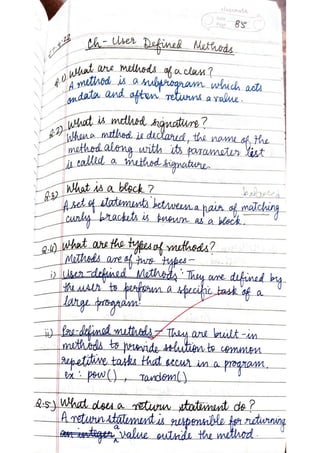 classmate
85
Ch - User Defined Methods
Q.1) What are methods of a class?
A method is a subprogram which acts
on data and often returns a value.
Q.2) What is method signature?
When a method is declared, the name of the
method along with its parameter list
is called a method signature.
Q.3) What is a block?
A set of statements between a pair of matching
curly brackets is known as a block.
Q.4) What are the types of methods?
Methods are of two types -
i) User-defined Methods: They are defined by
the user to perform a specific task of a
large program.
ii) Pre-defined methods - They are built-in
methods to provide solution to common
repetitive tasks that occur in a program.
ex: pow(), random()
Q.5) What does a return statement do?
A return statement is responsible for returning
an integer a value outside the method.